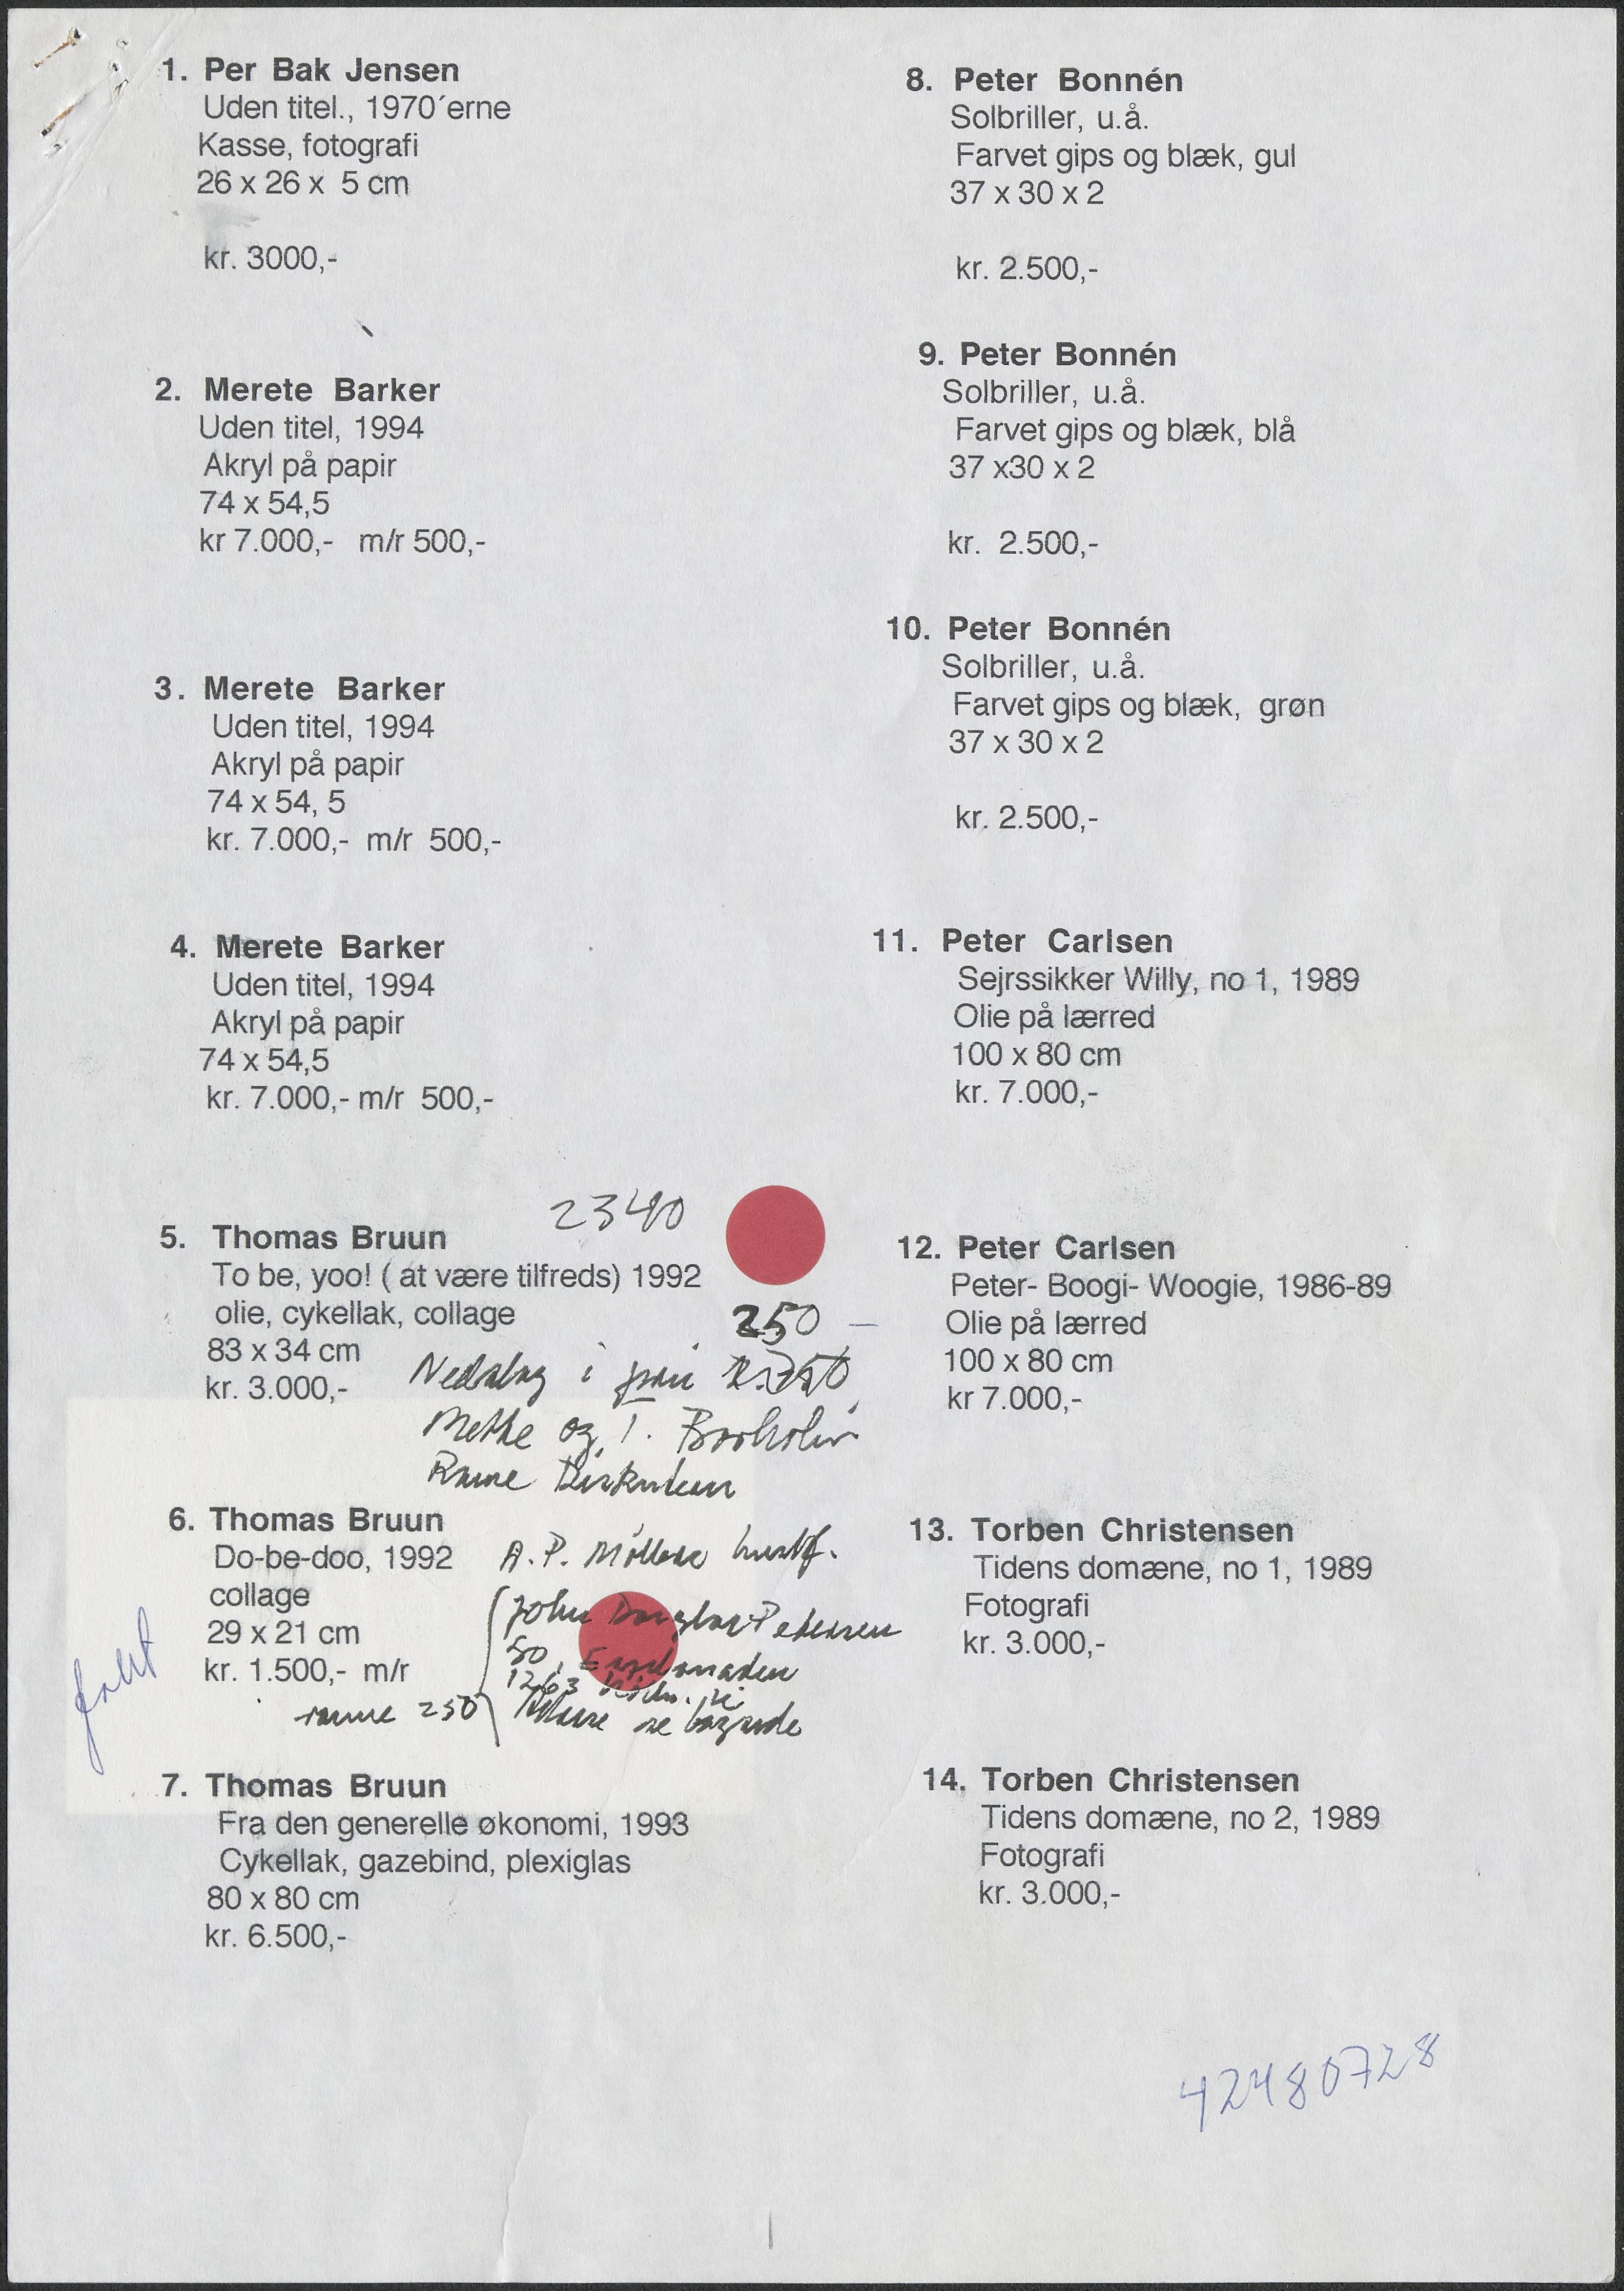 1. Per Bak Jensen
Uden titel., 1970´erne
Kasse, fotografi
26 x 26 x 5 cm
kr. 3000,-
2. Merete Barker
Uden titel, 1994
Akryl på papir
74 x 54,5
kr 7.000,- m/r 500,-
3. Merete Barker
Uden titel, 1994
Akryl på papir
74 x 54, 5
kr. 7.000,- m/r 500,-
4. Merete Barker
Uden titel, 1994
Akryl på papir
74 x 54,5
kr. 7.000,- m/r 500,-
2340
5. Thomas Bruun
To be, yoo! ( at være tilfreds) 1992
olie, cykellak, collage
250 -
83 x 34 cm
kr. 3.000,-
Nedslag i
Mette og
6. Thomas Bruun
Do-be-doo, 1992
A. P. Møller
collage
John Petersen
29 x 21 cm
50, Esplanaden
kr. 1.500,- m/r
1263
ramme 250
se bagside
7. Thomas Bruun
Fra den generelle økonomi, 1993
Cykellak, gazebind, plexiglas
80 x 80 cm
kr. 6.500,-
8. Peter Bonnén
Solbriller, u.å.
Farvet gips og blæk, gul
37 x 30 x 2
kr. 2.500,-
9. Peter Bonnén
Solbriller, u.å.
Farvet gips og blæk, blå
37 x30 x 2
kr. 2.500,-
10. Peter Bonnén
Solbriller, u.å.
Farvet gips og blæk, grøn
37 x 30 x 2
kr. 2.500,-
11. Peter Carlsen
Sejrssikker Willy, no 1, 1989
Olie på lærred
100 x 80 cm
kr. 7.000,-
12. Peter Carlsen
Peter- Boogi- Woogie, 1986-89
Olie på lærred
100 x 80 cm
kr 7.000,-
13. Torben Christensen
Tidens domæne, no 1, 1989
Fotografi
kr. 3.000,-
14. Torben Christensen
Tidens domæne, no 2, 1989
Fotografi
kr. 3.000,-
42480728